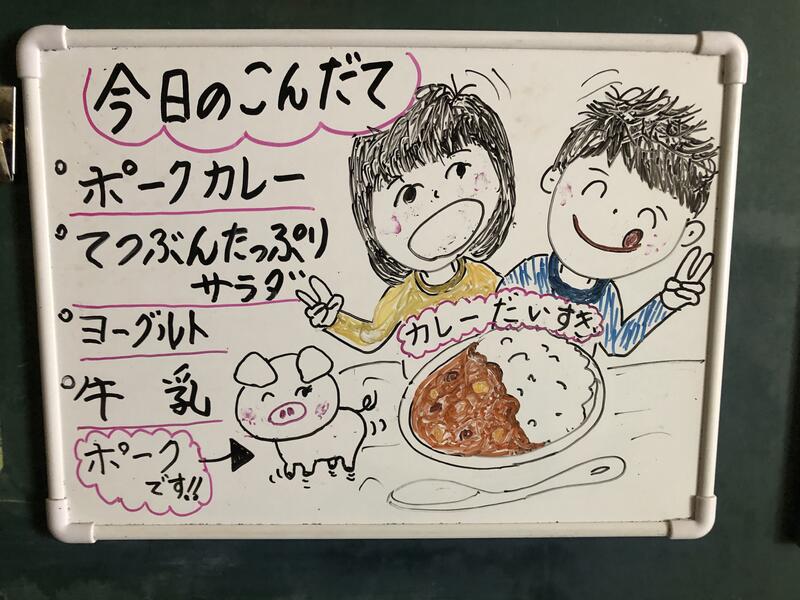 今日のこんだて
ポークカレー
てつぶんたっぷり
サラダ
ヨーグルト
牛 乳
ポーク
です!!
カレーだいすき